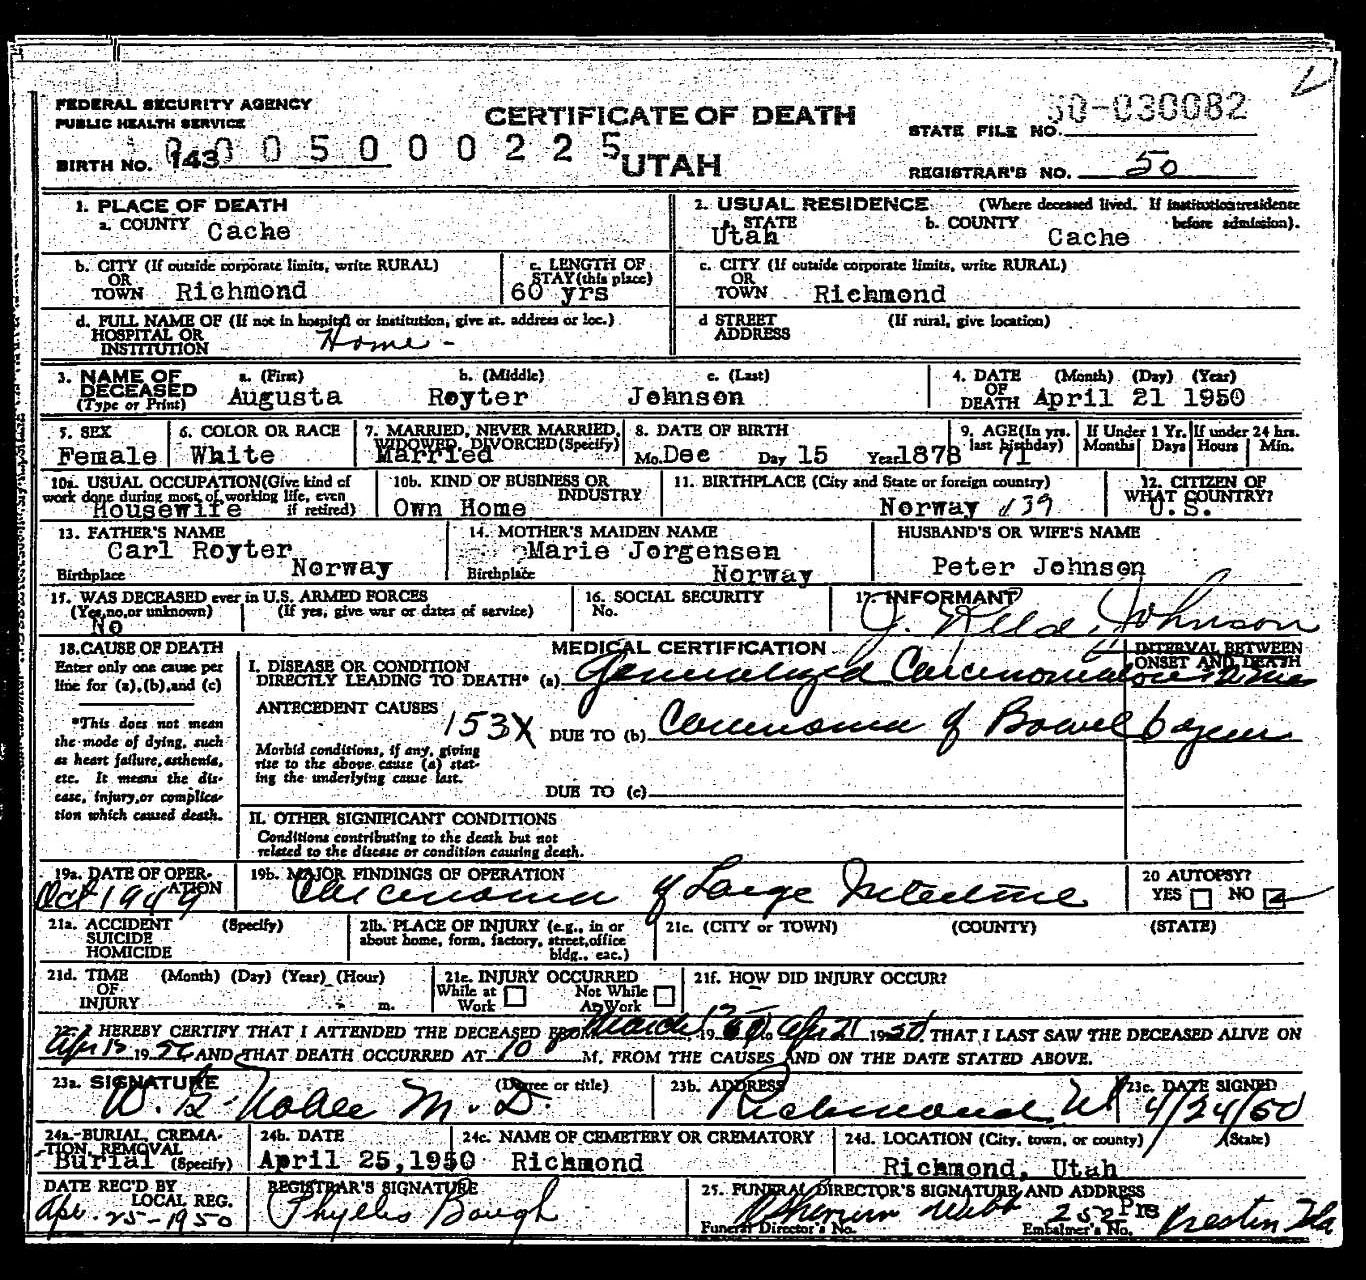 FEDERAL SECURITY AGENCY
PUBLIC HEALTH SERVICE
CERTIFICATE OF DEATH
UTAH
STATE FILE NO. 50-030082
BIRTH NO. 143
0 0 0 5 0 0 0 2 2 5
REGISTRAR'S NO. 50
1. PLACE OF DEATH
a. COUNTY Cache
2. USUAL RESIDENCE (Where deceased lived. If institution: residence before admission).
a. STATE Utah b. COUNTY Cache
b. CITY (If outside corporate limits, write RURAL)
OR
TOWN Richmond
c. LENGTH OF
STAY (this place)
60 yrs
c. CITY (If outside corporate limits, write RURAL)
OR
TOWN Richmond
d. FULL NAME OF (If not in hospital or institution, give st. address or loc.)
HOSPITAL OR
INSTITUTION Home -
d STREET (If rural, give location)
ADDRESS
3. NAME OF DECEASED
(Type or Print)
a. (First) b. (Middle) c. (Last)
Augusta Royter Johnson
4. DATE OF DEATH (Month) (Day) (Year)
April 21 1950
5. SEX
Female
6. COLOR OR RACE
White
7. MARRIED, NEVER MARRIED,
WIDOWED, DIVORCED (Specify)
Married
8. DATE OF BIRTH
Mo. Dec Day 15 Year 1878
9. AGE (In yrs. last birthday)
71
If Under 1 Yr.
Months Days
If under 24 hrs.
Hours Min.
10a. USUAL OCCUPATION (Give kind of
work done during most of working life, even
if retired)
Housewife
10b. KIND OF BUSINESS OR
INDUSTRY
Own Home
11. BIRTHPLACE (City and State or foreign country)
Norway 139
12. CITIZEN OF
WHAT COUNTRY?
U.S.
13. FATHER'S NAME
Carl Royter
Birthplace Norway
14. MOTHER'S MAIDEN NAME
Marie Jorgensen
Birthplace Norway
HUSBAND'S OR WIFE'S NAME
Peter Johnson
15. WAS DECEASED ever in U.S. ARMED FORCES
(Yes, no, or unknown) (If yes, give war or dates of service)
No
16. SOCIAL SECURITY
No.
17. INFORMANT
Johnson
18. CAUSE OF DEATH
Enter only one cause per
line for (a), (b), and (c)
*This does not mean
the mode of dying, such
as heart failure, asthenia,
etc. It means the dis-
ease, injury, or complica-
tion which caused death.
MEDICAL CERTIFICATION
INTERVAL BETWEEN
ONSET AND DEATH
I. DISEASE OR CONDITION
DIRECTLY LEADING TO DEATH* (a) Generalized Carcinoma
ANTECEDENT CAUSES
153X
DUE TO (b) Carcinoma of Bowel
Morbid conditions, if any, giving
rise to the above cause (a) stat-
ing the underlying cause last.
DUE TO (c)
II. OTHER SIGNIFICANT CONDITIONS
Conditions contributing to the death but not
related to the disease or condition causing death.
19a. DATE OF OPER-
ATION
Oct 1949
19b. MAJOR FINDINGS OF OPERATION
Carcenoma of Large Intestine
20 AUTOPSY?
YES NO
21a. ACCIDENT (Specify)
SUICIDE
HOMICIDE
21b. PLACE OF INJURY (e.g., in or
about home, form, factory, street, office
bldg., eac.)
21c. (CITY or TOWN) (COUNTY) (STATE)
21d. TIME (Month) (Day) (Year) (Hour)
OF
INJURY m.
21e. INJURY OCCURRED
While at Work Not While At Work
21f. HOW DID INJURY OCCUR?
22. I HEREBY CERTIFY THAT I ATTENDED THE DECEASED FROM March, 19 50 to Apr 21 1950. THAT I LAST SAW THE DECEASED ALIVE ON
Apr 12 1950 AND THAT DEATH OCCURRED AT 10 P M. FROM THE CAUSES AND ON THE DATE STATED ABOVE.
23a. SIGNATURE (Degree or title)
M.D.
23b. ADDRESS
Richmond Ut
23c. DATE SIGNED
4/24/50
24a. BURIAL, CREMA-
TION, REMOVAL
Burial (Specify)
24b. DATE
April 25, 1950
24c. NAME OF CEMETERY OR CREMATORY
Richmond
24d. LOCATION (City, town, or county) (State)
Richmond, Utah
DATE REC'D BY
LOCAL REG.
Apr. 25-1950
REGISTRAR'S SIGNATURE
Phyllis Bough
25. FUNERAL DIRECTOR'S SIGNATURE AND ADDRESS
Webb Preston Ida
Funeral Director's No. Embalmer's No.